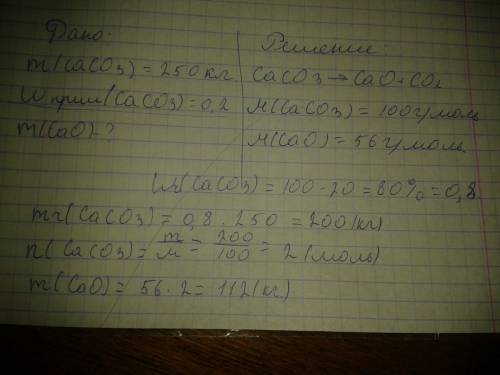 Дано:
m(CaCO3) = 250 кг.
Wприм(CaCO3) = 0,2
m(CaO)-?
Решение:
CaCO3 → CaO + CO2
M(CaCO3) = 100 г/моль
M(CaO) = 56 г/моль
W(CaCO3) = 100 - 20 = 80% = 0,8
mч(CaCO3) = 0,8 · 250 = 200(кг)
n(CaCO3) = m/M = 200/100 = 2(моль)
m(CaO) = 56 · 2 = 112(кг.)